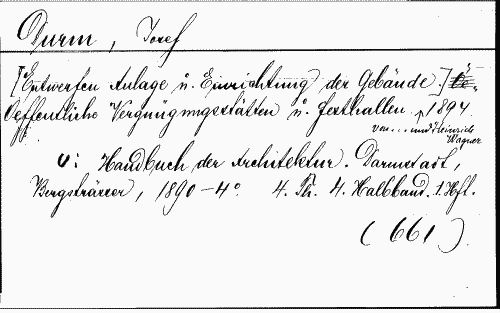 Durm, Josef
[Entwerfen Anlage u. Einrichtung der Gebäude.]
Oeffentliche Vergnügungsstätten u. Festhallen. 1894
von... und Heinrich
Wagner
v: Handbuch der Architektur. Darmstadt,
Bergsträsser, 1890-4° 4. Th. 4. Halbband. 1. Hft.
(661)